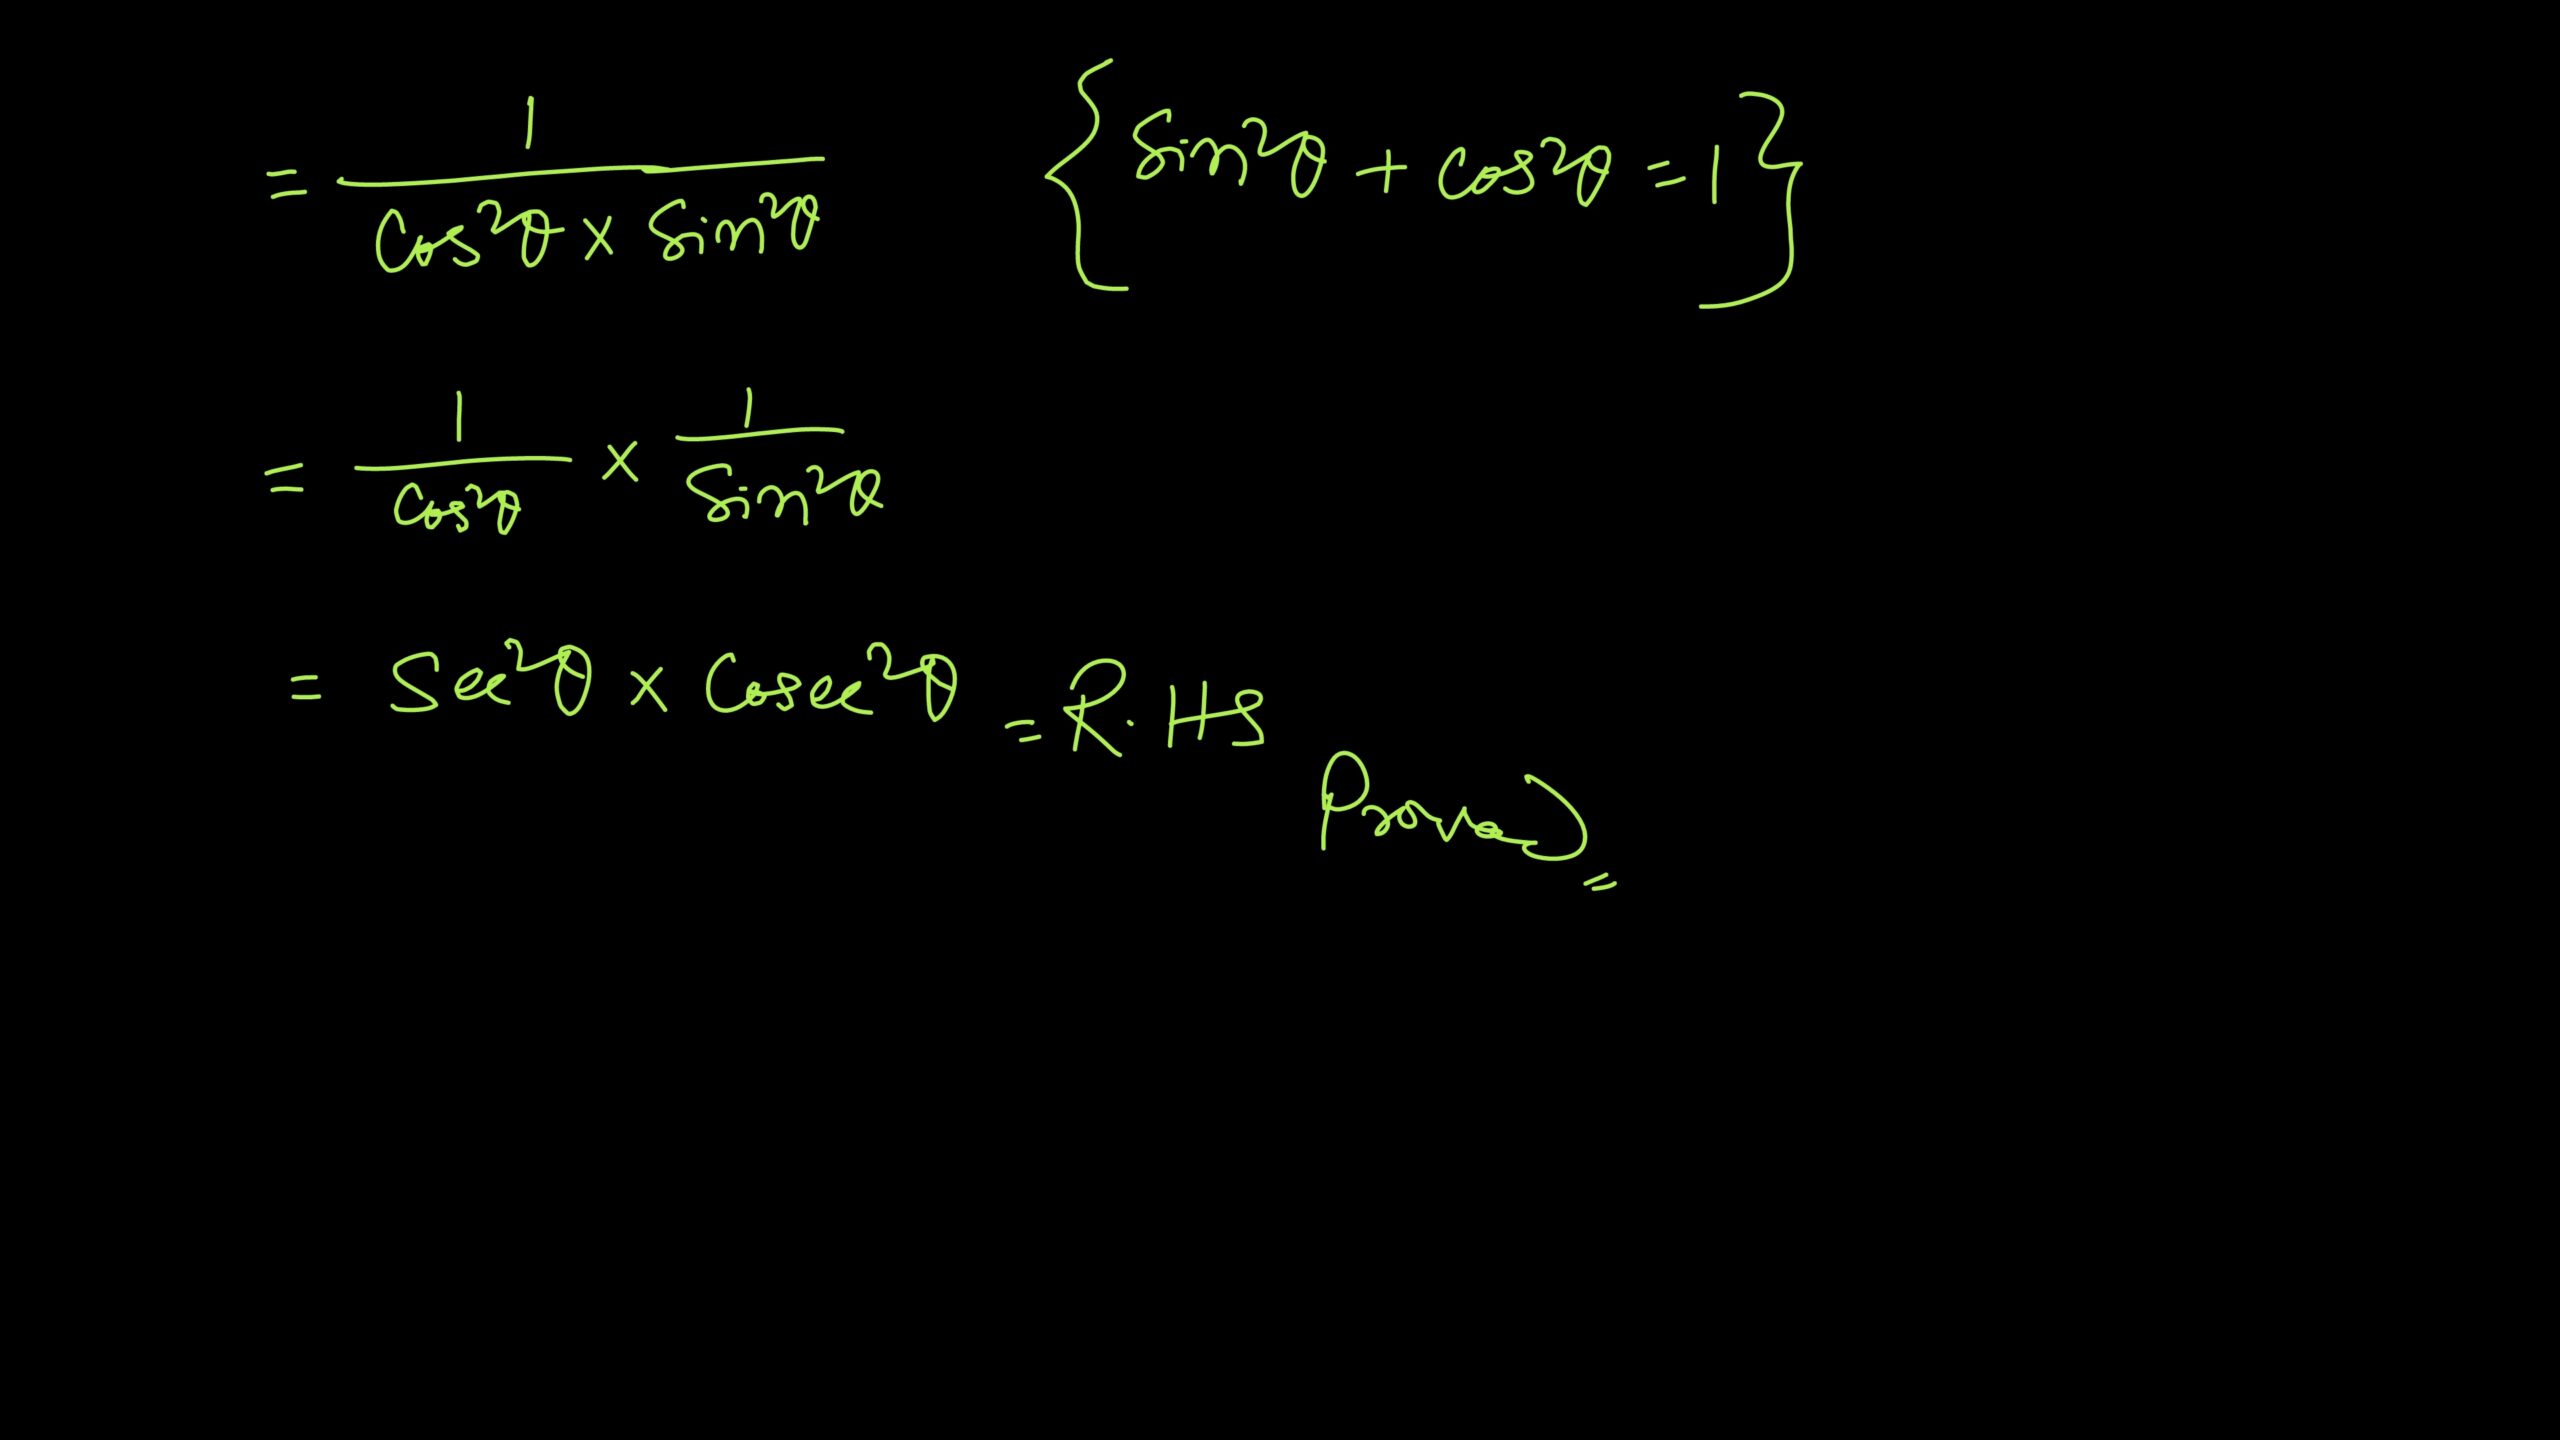 = 1 / Cos²θ × Sin²θ {Sin²θ + Cos²θ = 1}
= 1 / Cos²θ × 1 / Sin²θ
= Sec²θ × Cosec²θ = R.HS
Proved